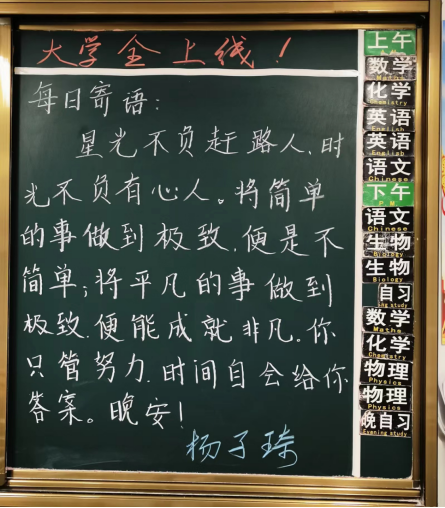 大学全上线！
每日寄语：
星光不负赶路人，时
光不负有心人。将简单
的事做到极致，便是不
简单；将平凡的事做到
极致，便能成就非凡。你
只管努力，时间自会给你
答案。晚安！
杨子琦
上午
数学
Maths
化学
Chemistry
英语
English
英语
English
语文
Chinese
下午
P.M.
语文
Chinese
生物
Biology
生物
Biology
自习
数学
Maths
化学
Chemistry
物理
Physics
物理
Physics
晚自习
Evening study